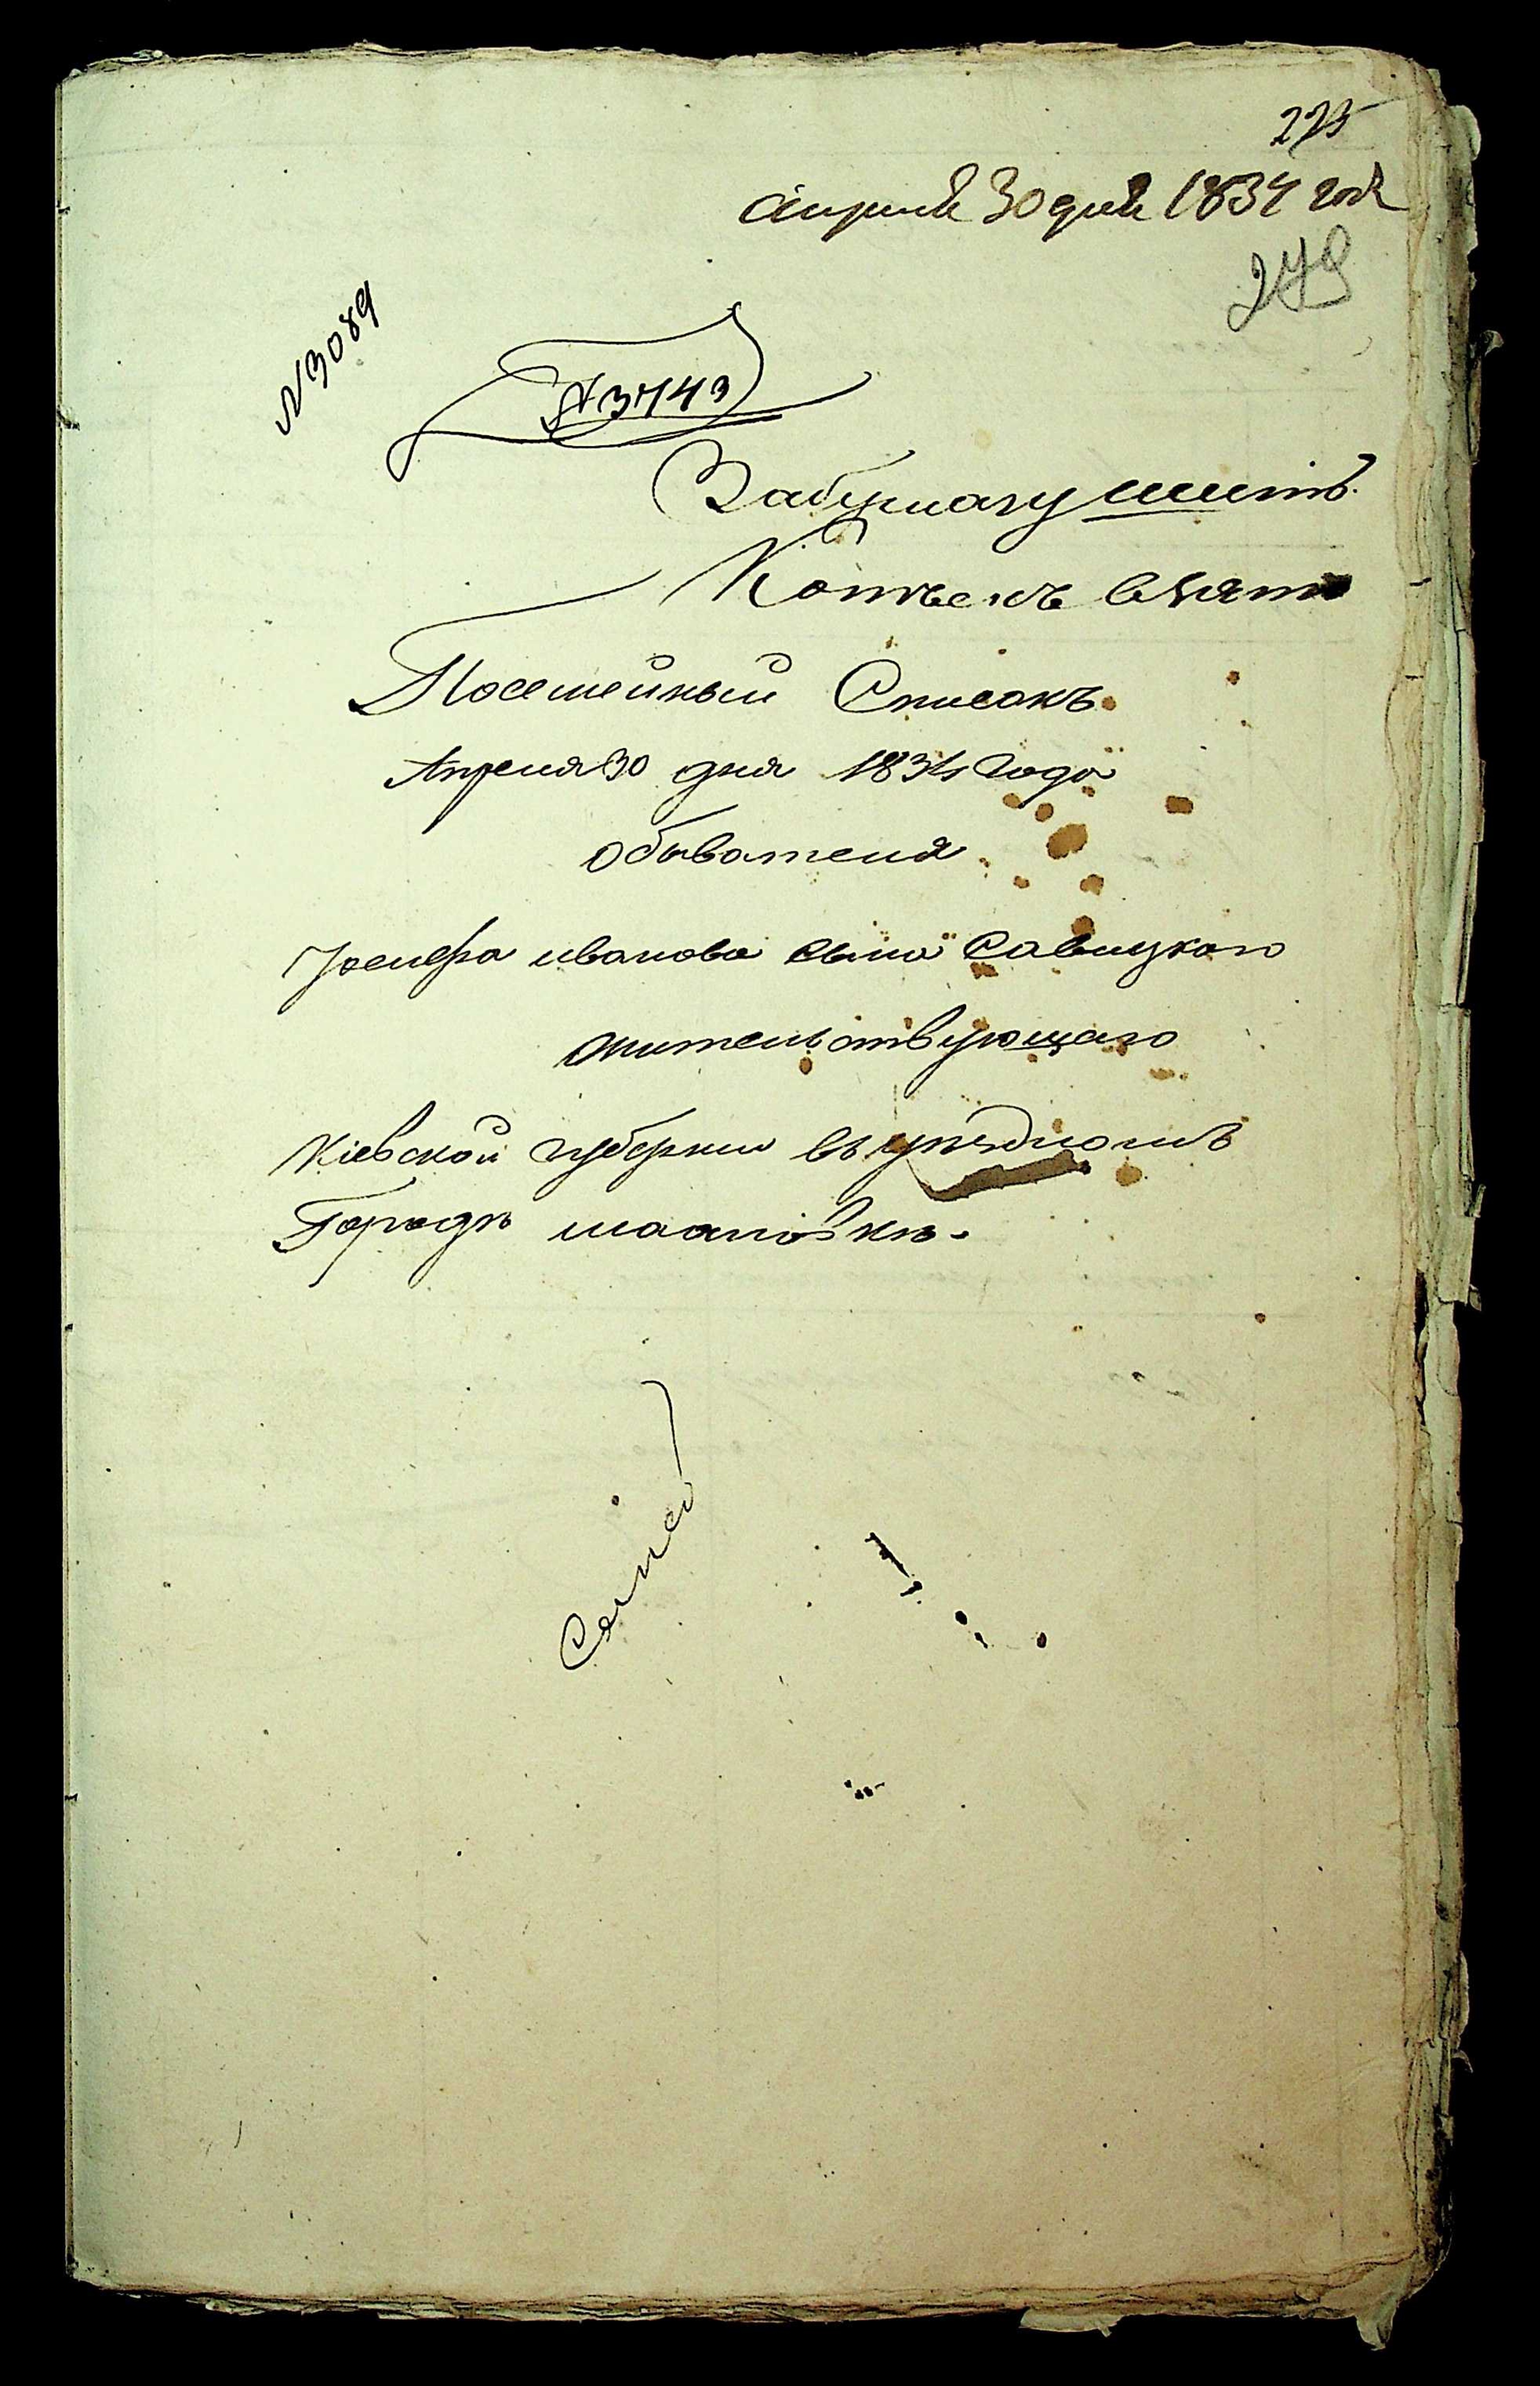 275
Апреля 30 дня 1834 года
279
№3089
№3743
За бумагу шесть
Копѣекъ взято
Посемейный Списокъ
Апреля 30 дня 1834 года
обывателя
Іосифа иванова сына Савицкого
жительствующаго
Кіевской губерніи въ уѣздномъ
Городѣ